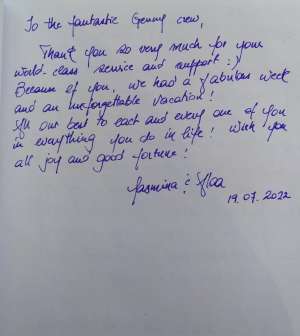 To the fantastic crew,
Thank you so very much for your
world-class service and support :)
Because of you, we had a fabulous week
and an unforgettable vacation!
All our best to each and every one of you
in everything you do in life! Wish you
all joy and good fortune!
Jasmina &
19.07.2022